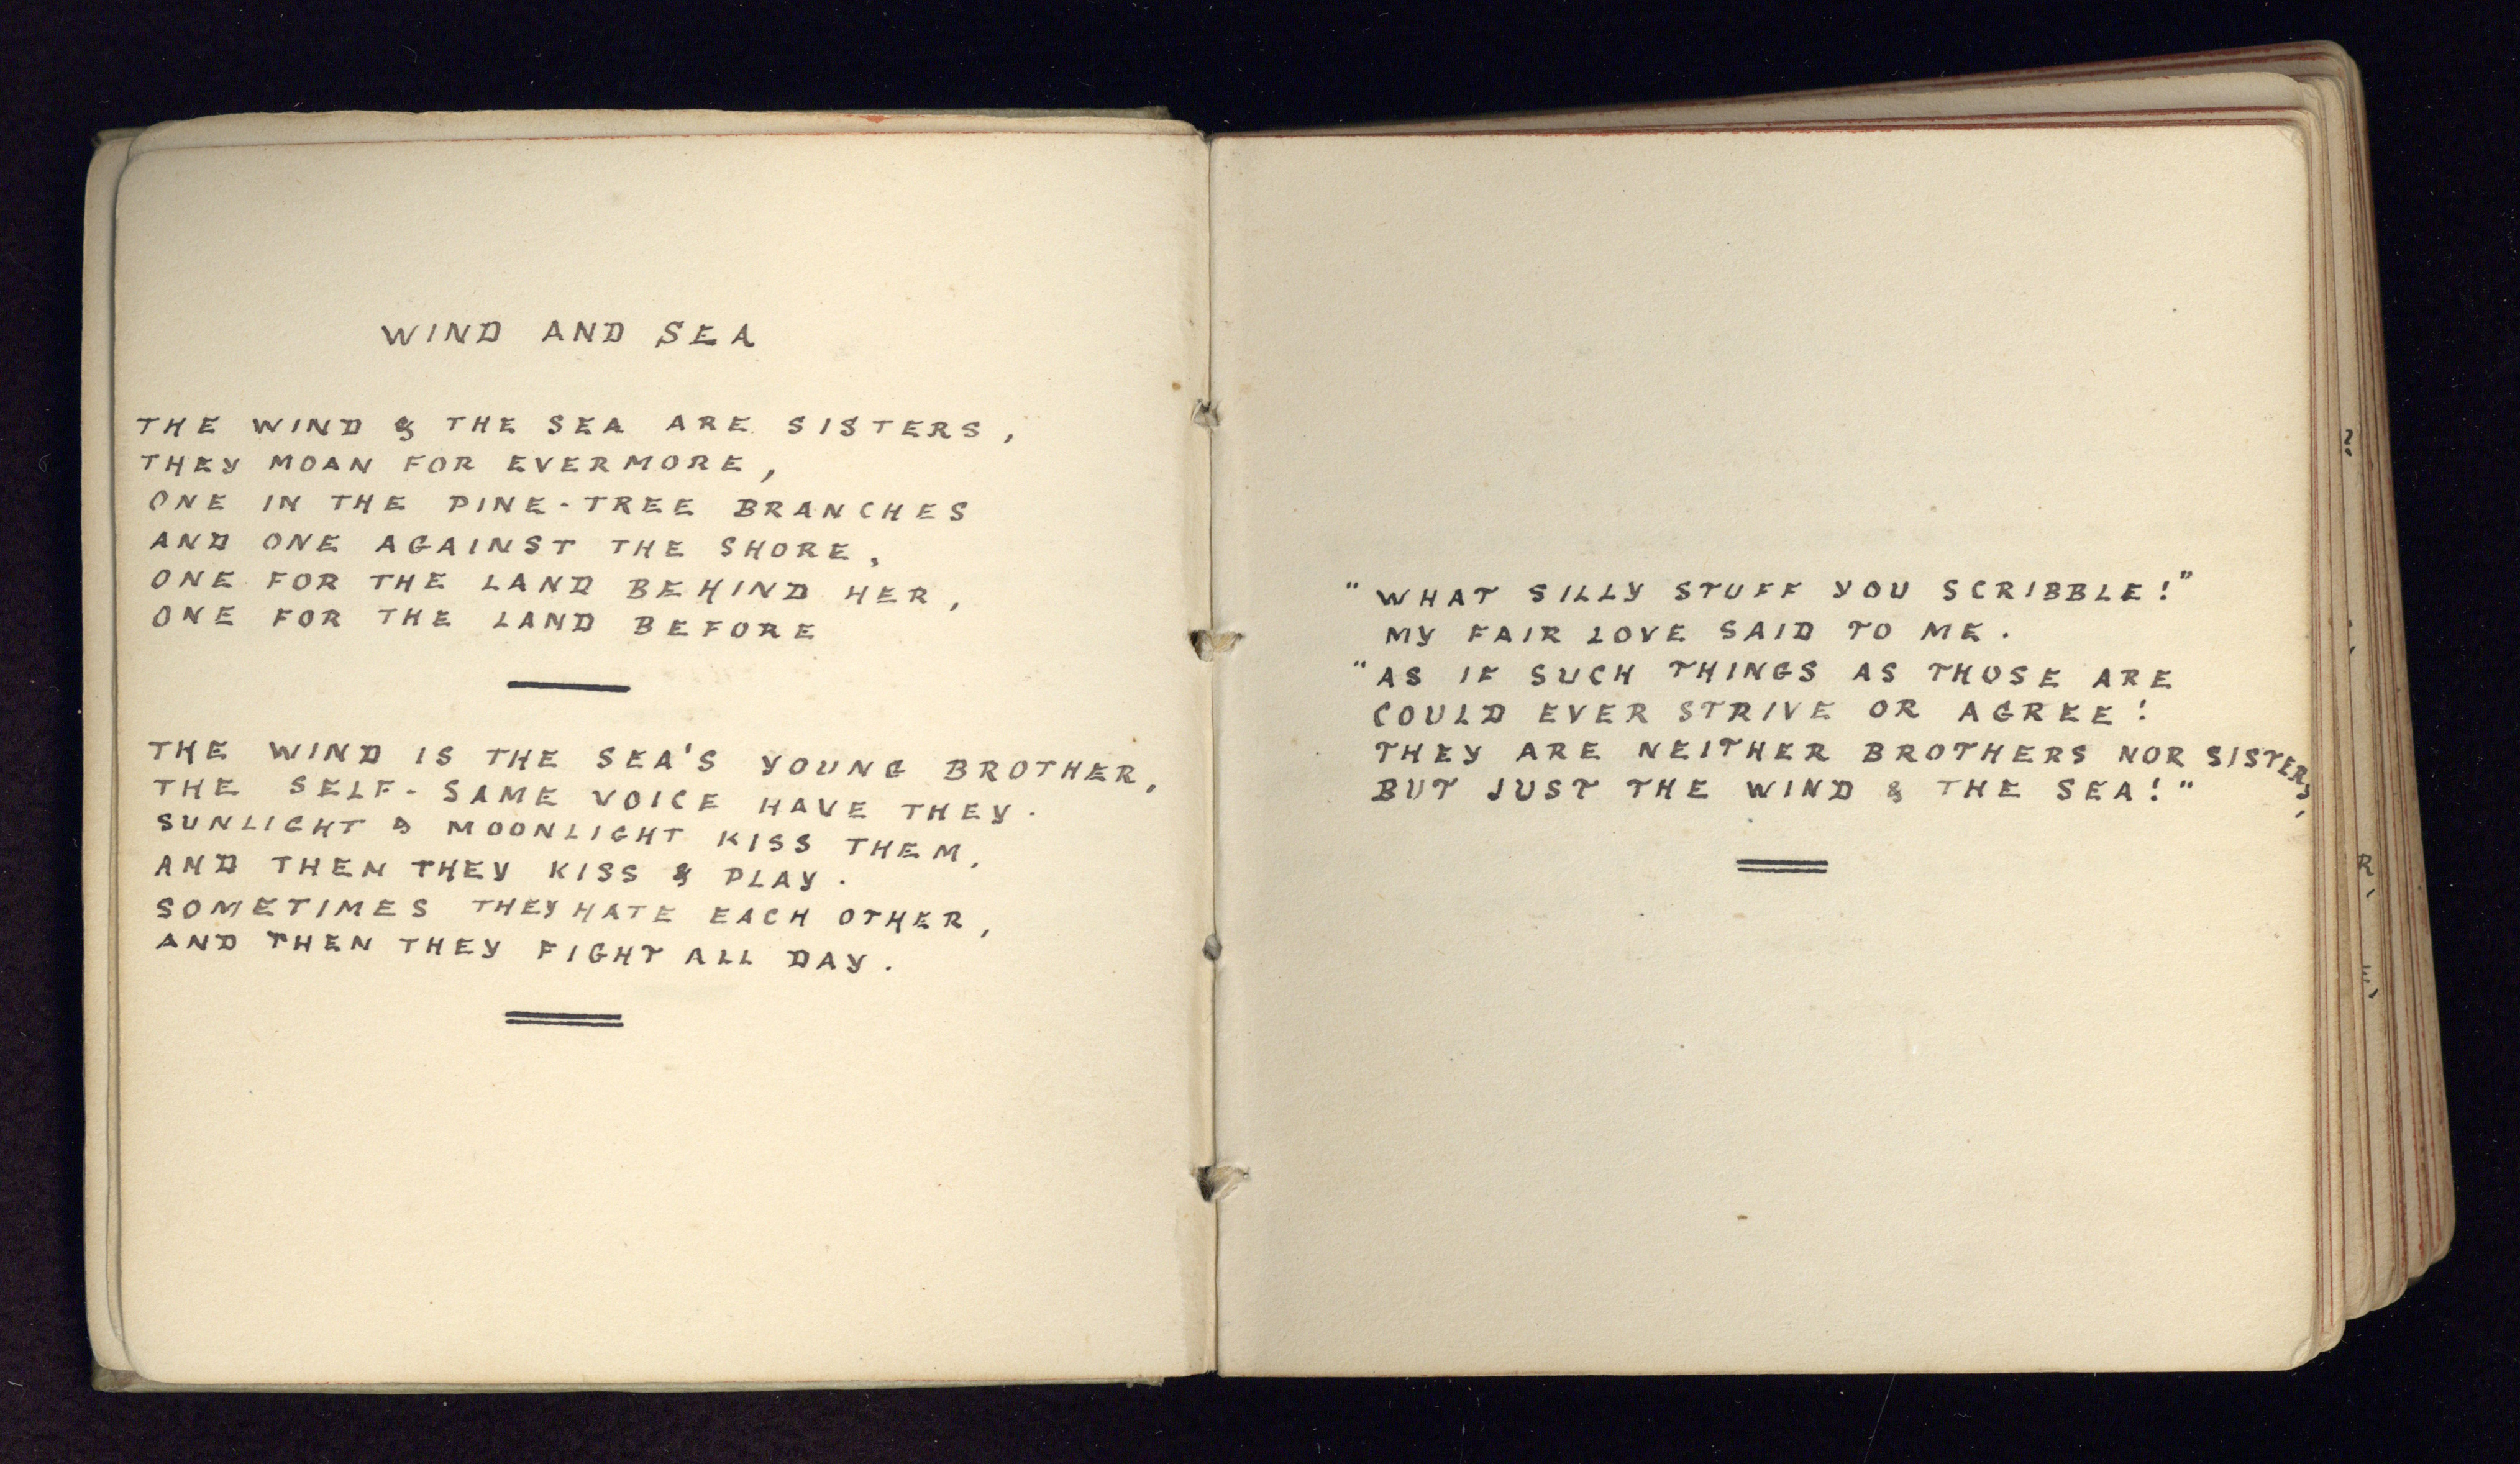 WIND AND SEA
THE WIND & THE SEA ARE SISTERS,
THEY MOAN FOR EVERMORE,
ONE IN THE PINE-TREE BRANCHES
AND ONE AGAINST THE SHORE,
ONE FOR THE LAND BEHIND HER,
ONE FOR THE LAND BEFORE
THE WIND IS THE SEA'S YOUNG BROTHER,
THE SELF-SAME VOICE HAVE THEY.
SUNLIGHT & MOONLIGHT KISS THEM,
AND THEN THEY KISS & PLAY.
SOMETIMES THEY HATE EACH OTHER,
AND THEN THEY FIGHT ALL DAY.
"WHAT SILLY STUFF YOU SCRIBBLE!"
MY FAIR LOVE SAID TO ME.
"AS IF SUCH THINGS AS THOSE ARE
COULD EVER STRIVE OR AGREE!
THEY ARE NEITHER BROTHERS NOR SISTERS,
BUT JUST THE WIND & THE SEA!"
?
R,
E,